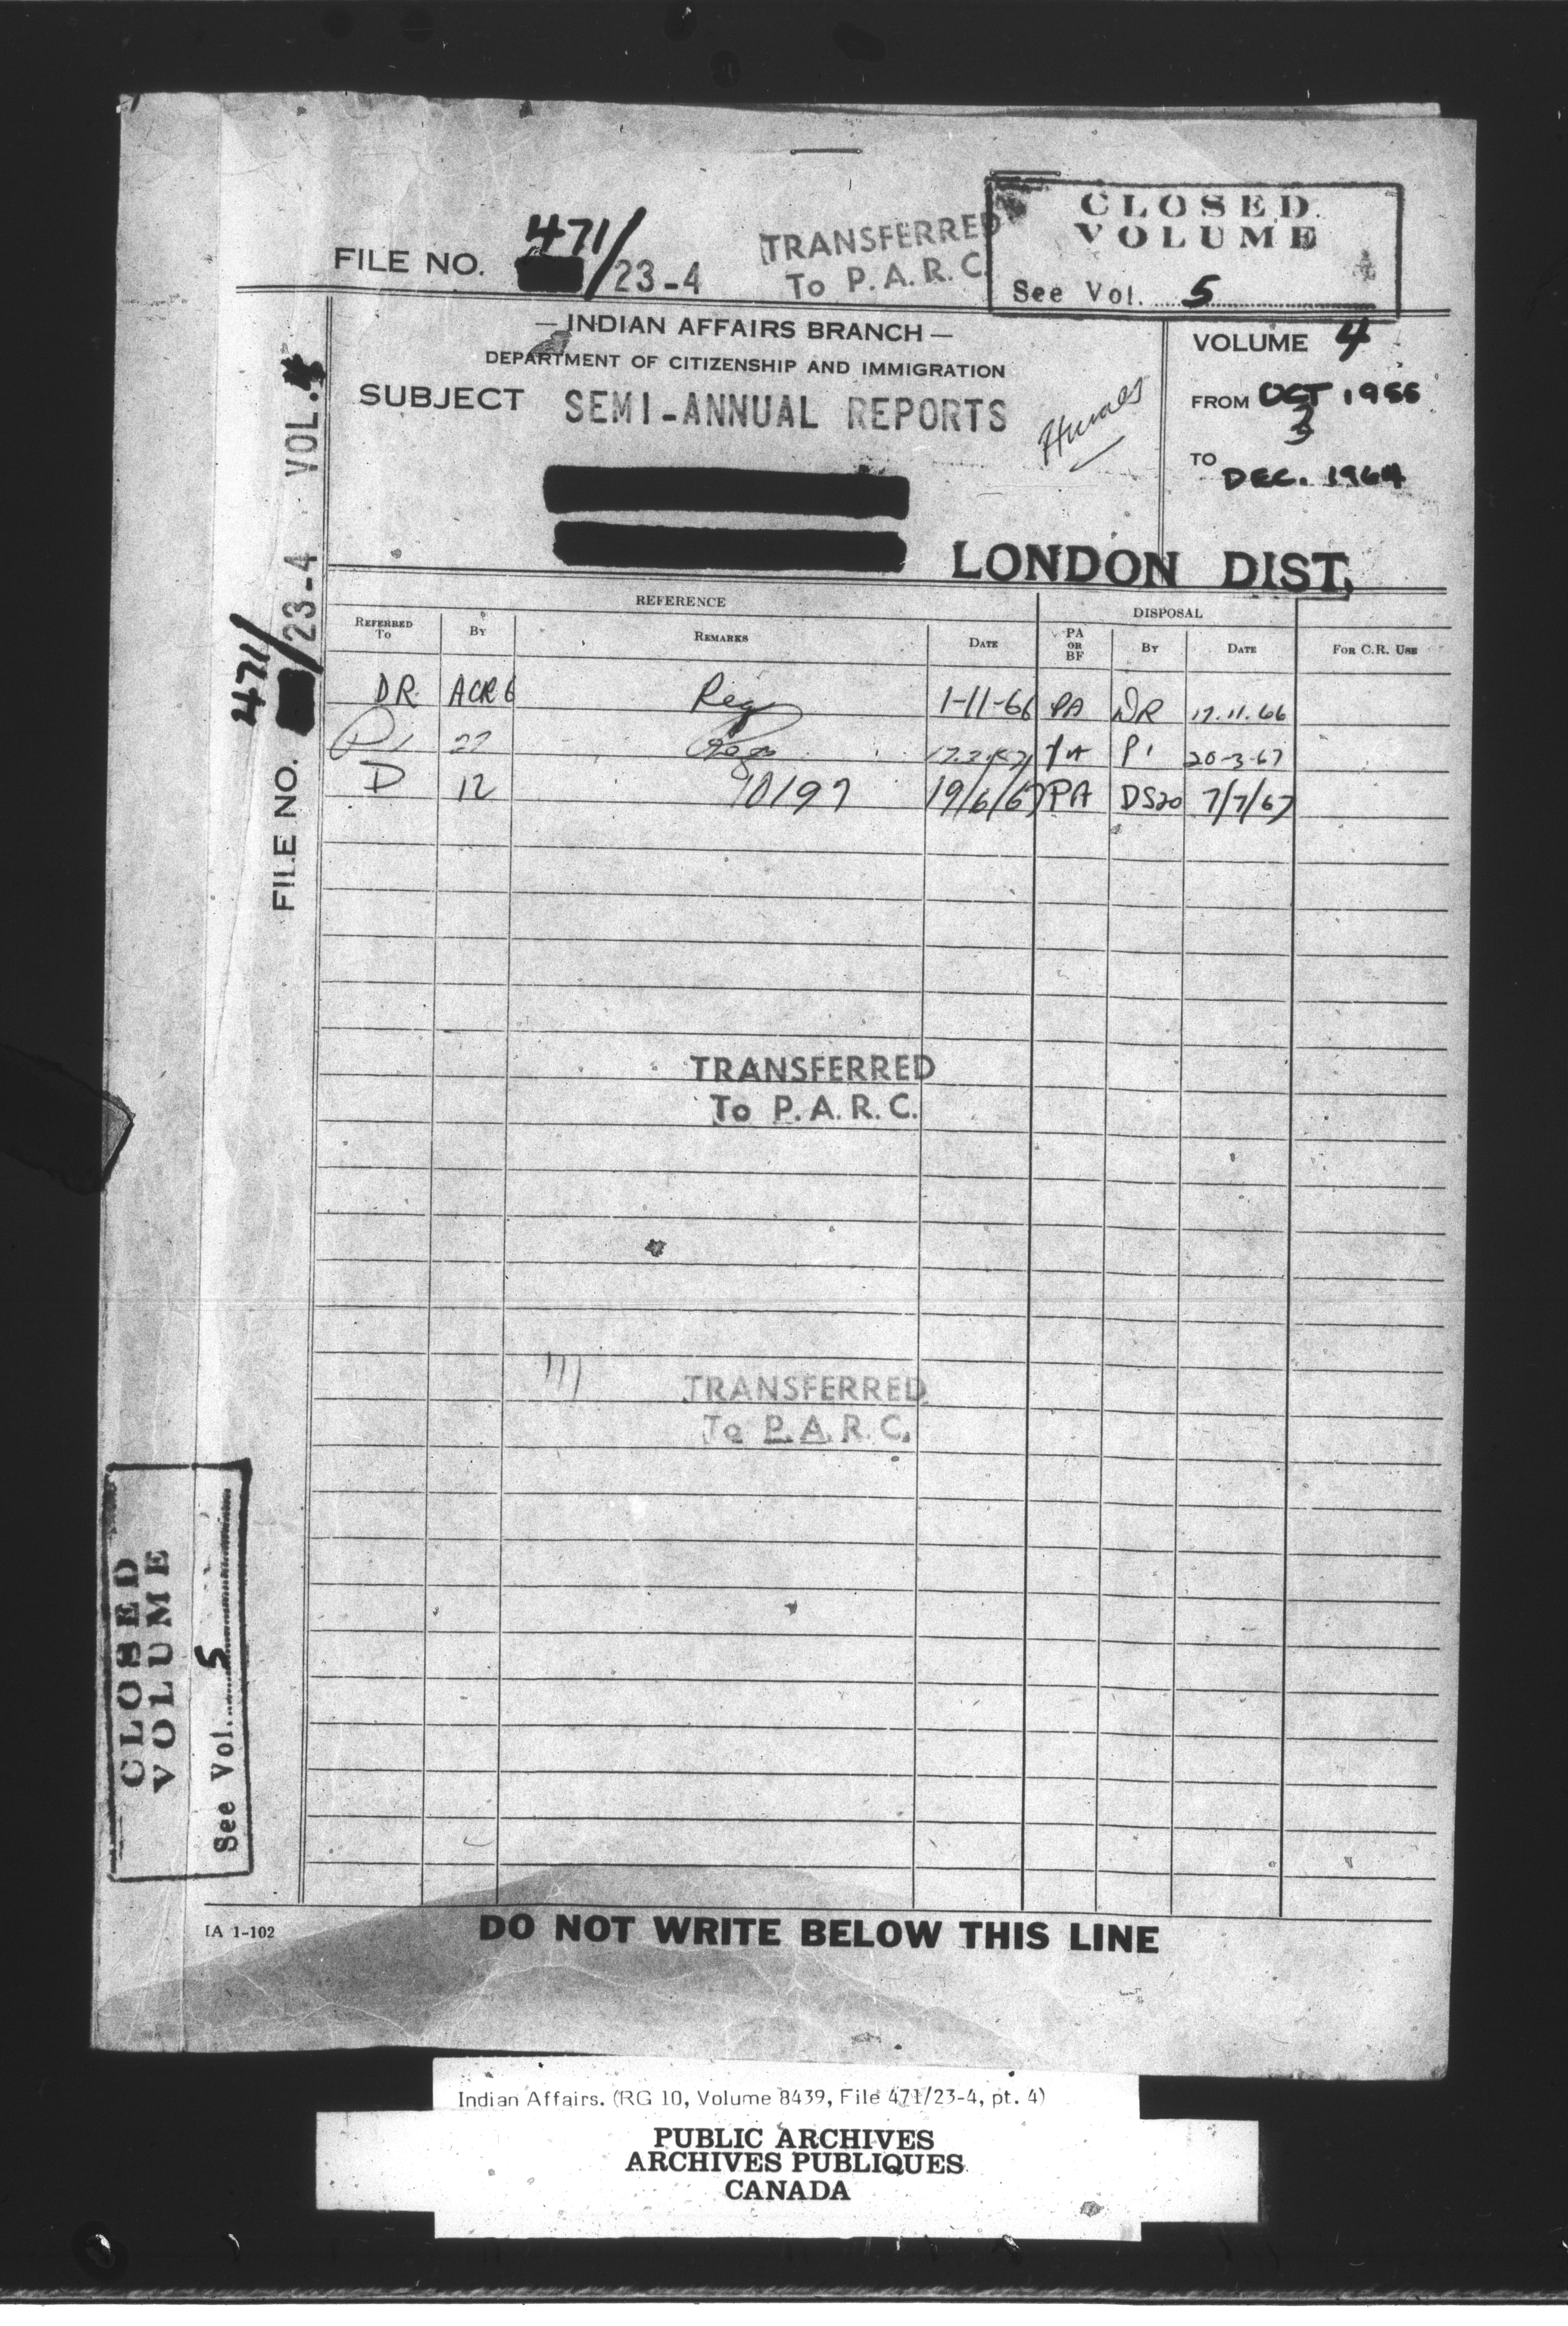 CLOSED
VOLUME
See Vol. 5
471/
FILE NO. /23-4
TRANSFERRED
To P.A.R.C.
— INDIAN AFFAIRS BRANCH —
DEPARTMENT OF CITIZENSHIP AND IMMIGRATION
SUBJECT SEMI-ANNUAL REPORTS
VOLUME 4
FROM OCT 1955
TO
DEC. 1964
LONDON DIST.
FILE NO. 471/23-4 VOL.
REFERENCE
DISPOSAL
REFERRED To
BY
REMARKS
DATE
PA OR BF
BY
DATE
FOR C.R. USE
DR. ACR6 Req 1-11-66 PA DR 17.11.66
P1 22 PA P1 20-3-67
D 12 10197 19/6/67 PA DS20 7/7/67
TRANSFERRED
To P.A.R.C.
TRANSFERRED
To P.A.R.C.
CLOSED
VOLUME
See Vol. 5
IA 1-102
DO NOT WRITE BELOW THIS LINE
Indian Affairs. (RG 10, Volume 8439, File 471/23-4, pt. 4)
PUBLIC ARCHIVES
ARCHIVES PUBLIQUES
CANADA